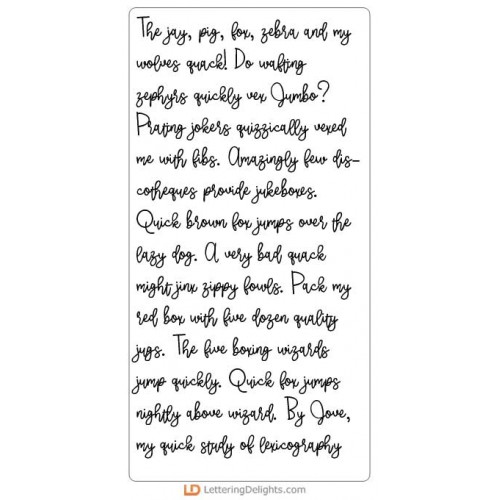 The jay, pig, fox, zebra and my
wolves quack! Do wafting
zephyrs quickly vex Jumbo?
Prating jokers quizzically vexed
me with fibs. Amazingly few dis-
cotheques provide jukeboxes.
Quick brown fox jumps over the
lazy dog. A very bad quack
might jinx zippy fowls. Pack my
red box with five dozen quality
jugs. The five boxing wizards
jump quickly. Quick fox jumps
nightly above wizard. By Jove,
my quick study of lexicography
LD LetteringDelights.com